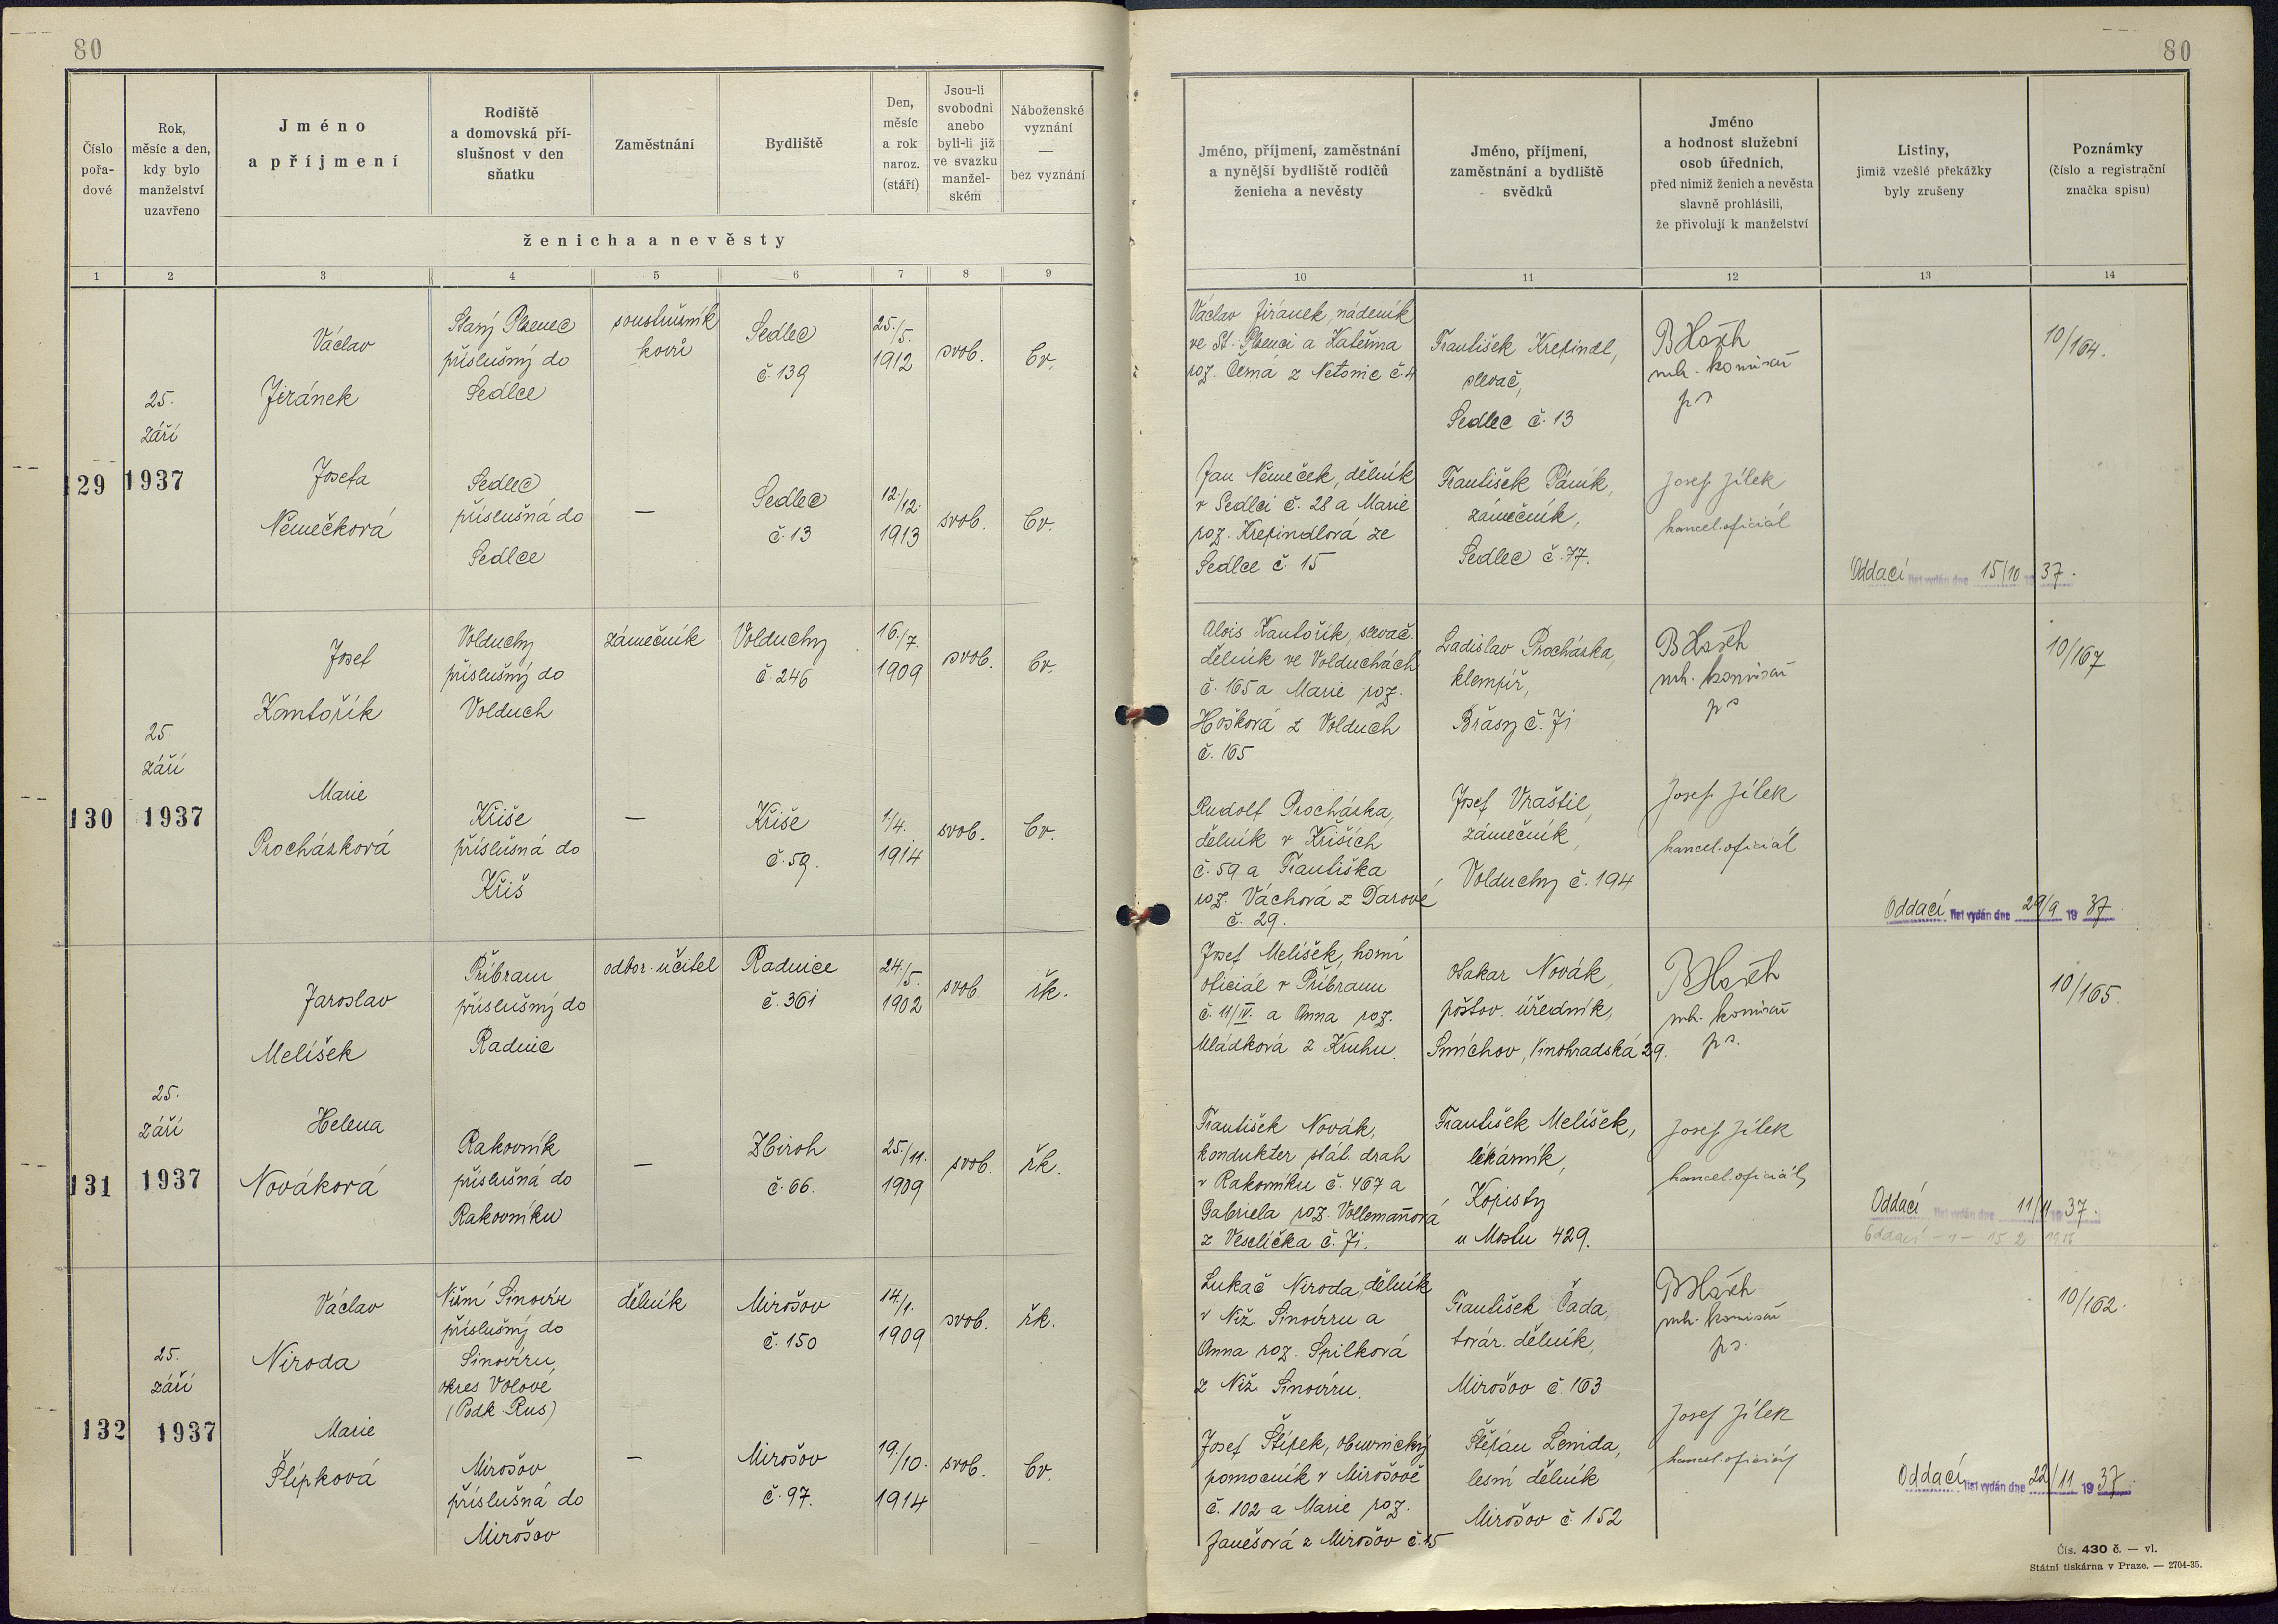 80
80
Číslo
pořa-
dové
Rok,
měsíc a den,
kdy bylo
manželství
uzavřeno
Jméno
a příjmení
Rodiště
a domovská pří-
slušnost v den
sňatku
Zaměstnání
Bydliště
Den,
měsíc
a rok
naroz.
(stáří)
Jsou-li
svobodni
anebo
byli-li již
ve svazku
manžel-
ském
Náboženské
vyznání
—
bez vyznání
ženicha a nevěsty
Jméno, příjmení, zaměstnání
a nynější bydliště rodičů
ženicha a nevěsty
Jméno, příjmení,
zaměstnání a bydliště
svědků
Jméno
a hodnost služební
osob úředních,
před nimiž ženich a nevěsta
slavně prohlásili,
že přivolují k manželství
Listiny,
jimiž vzešlé překážky
byly zrušeny
Poznámky
(číslo a registrační
značka spisu)
1 2 3 4 5 6 7 8 9 10 11 12 13 14
129
25.
září
1937
Václav
Jiránek
Starý Plzenec
příslušný do
Sedlce
soustružník
kovů
Sedlec
č. 139
25./5.
1912
svob.
čv.
Václav Jiránek, nádeník
ve St. Plzenci a Kateřina
roz. Černá z Netonic č. 4
František Krepindl,
slevač,
Sedlec č. 13
rada komisař
10/164.
Josefa
Němečková
Sedlec
příslušná do
Sedlce
—
Sedlec
č. 13
12./12.
1913
svob.
čv.
Jan Němeček, dělník
v Sedlci č. 28 a Marie
roz. Krepindlová ze
Sedlce č. 15
František Páník,
zámečník,
Sedlec č. 77.
Josef Jílek
kancel. oficiál
Oddací list vydán dne 15/10 37.
130
25.
září
1937
Josef
Kantořík
Volduchy
příslušný do
Volduch
zámečník
Volduchy
č. 246
16./7.
1909
svob.
čv.
Alois Kantořík, slevač.
dělník ve Volduchách
č. 165 a Marie roz.
Hošková z Volduch
č. 165
Ladislav Procházka,
klempíř,
Břasy č. 71
komisař
10/167
Marie
Procházková
Kříše
příslušná do
Kříš
—
Kříše
č. 59.
1./4.
1914
svob.
čv.
Rudolf Procházka,
dělník v Kříších
č. 59 a Františka
roz. Váchová z Darové
č. 29.
Josef Vraštil,
zámečník,
Volduchy č. 194
Josef Jílek
kancel. oficiál
Oddací list vydán dne 29/9 19 37
131
25.
září
1937
Jaroslav
Melíšek
Příbram
příslušný do
Radnic
odbor. učitel
Radnice
č. 361
24./5.
1902
svob.
řk.
Josef Melíšek, horní
oficiál v Příbrami
č. 11/IV. a Anna roz.
Mládková z Kruhu.
Otakar Novák,
poštov. úředník,
Smíchov, Vinohradská 29.
komisař
10/165.
Helena
Nováková
Rakovník
příslušná do
Rakovníku
—
Zbiroh
č. 66.
25./11.
1909
svob.
řk.
František Novák,
kondukter stát. drah
v Rakovníku č. 467 a
Gabriela roz. Vollemanová
z Veselíčka č. 71.
František Melíšek,
lékárník,
Kopisty
u Mostu 429.
Josef Jílek
kancel. oficiál
Oddací list vydán dne 11/11 19 37.
Oddací
132
25.
září
1937
Václav
Niroda
Nižní Sinovír
příslušný do
Sinovíru,
okres Volové
(Podk. Rus)
dělník
Mirošov
č. 150
14./1.
1909
svob.
řk.
Lukač Niroda, dělník
v Niž. Sinovíru a
Anna roz. Spilková
z Niž. Sinovíru.
František Čada,
továr. dělník,
Mirošov č. 163
komisař
10/162.
Marie
Štípková
Mirošov
příslušná do
Mirošov
—
Mirošov
č. 97.
19./10.
1914
svob.
čv.
Josef Štípek, obuvnický
pomocník v Mirošově
č. 102 a Marie roz.
Janešová z Mirošov č. 25
Štěpán Lenida,
lesní dělník
Mirošov č. 152
Josef Jílek
kancel. oficiál
Oddací list vydán dne 22/11 19 37.
Čís. 430 č. — vl.
Státní tiskárna v Praze. — 2704-35.